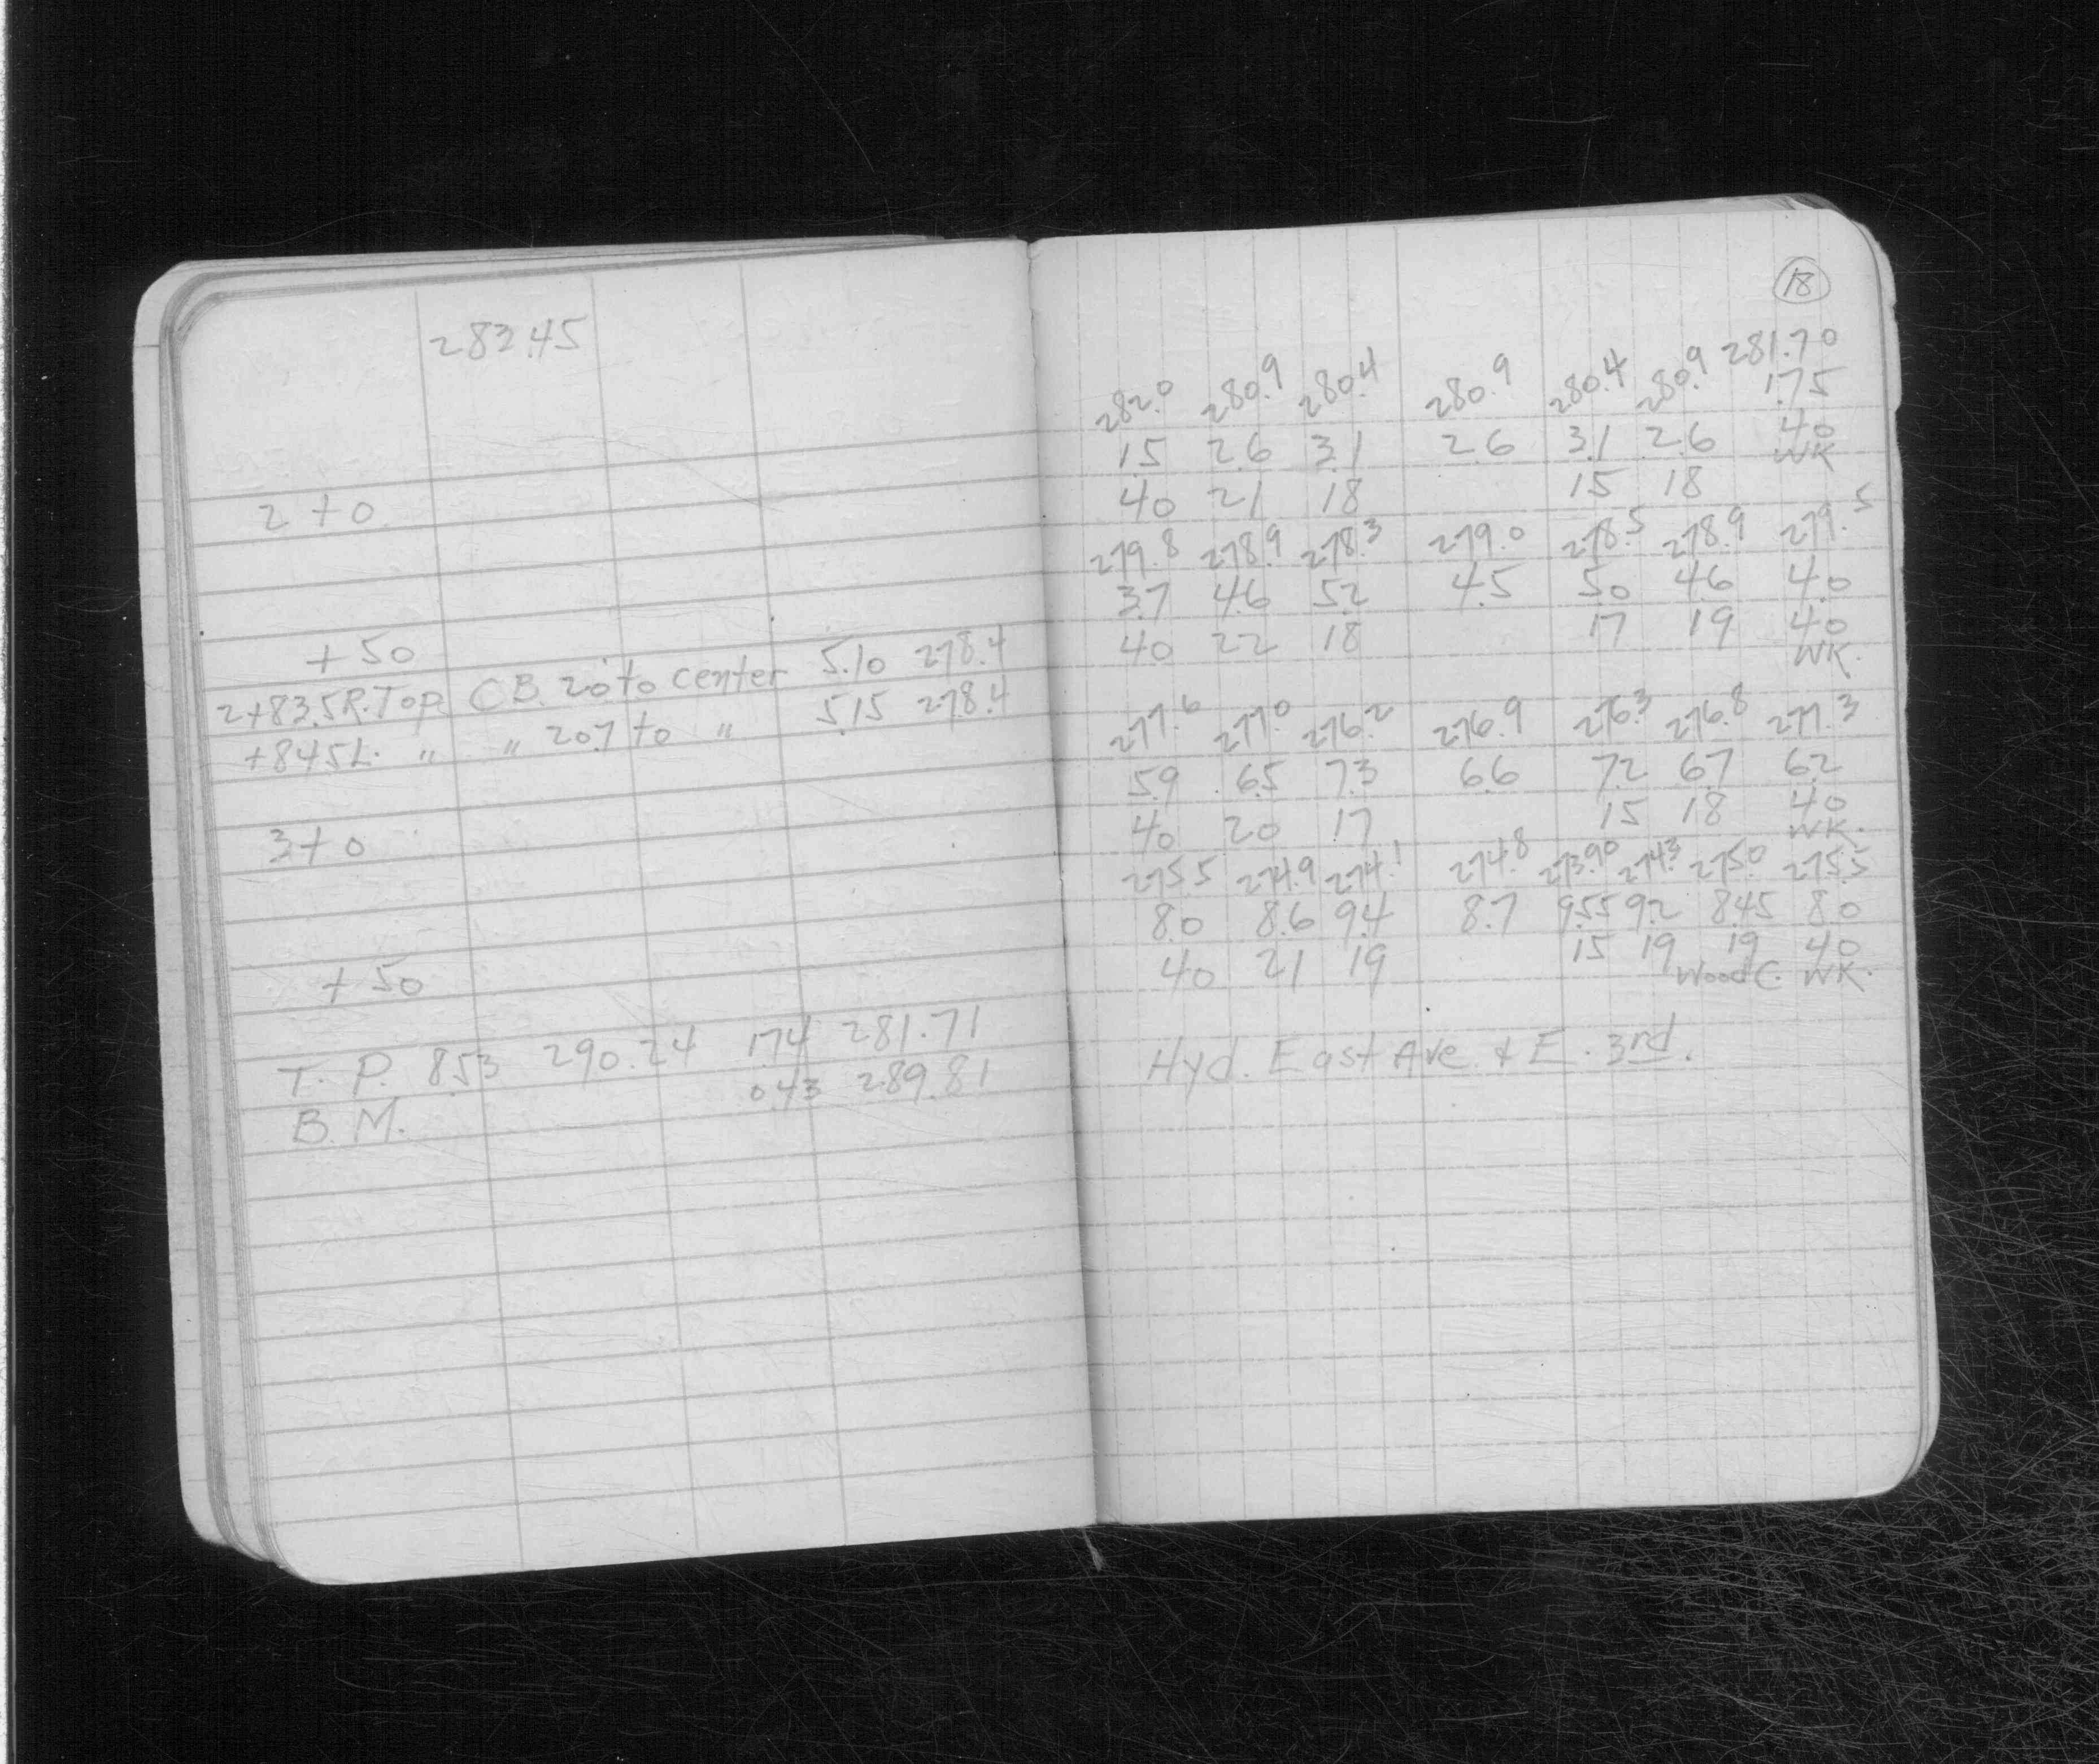 283.45
2 + 0
+ 50
2+83.5 R. Top C B. 20 to center 5.10 278.4
+84.5 L. " " 20.7 to " 5.15 278.4
3 + 0
+ 50
T. P. 8.53 290.24 1.74 281.71
B. M. 0.43 289.81
18
282.0 280.9 280.4 280.9 280.4 280.9 281.70
1.5 2.6 3.1 2.6 3.1 2.6 1.75
40 21 18 15 18 40
WK
279.8 278.9 278.3 279.0 278.5 278.9 279.5
3.7 4.6 5.2 4.5 5.0 4.6 4.0
40 22 18 17 19 40
WK.
277.6 277.0 276.2 276.9 276.3 276.8 277.3
5.9 6.5 7.3 6.6 7.2 6.7 6.2
40 20 17 15 18 40
WK.
275.5 274.9 274.1 274.8 273.90 274.3 275.0 275.5
8.0 8.6 9.4 8.7 9.55 9.2 8.45 8.0
40 21 19 15 19 19 40
Wood C. WK.
Hyd. East Ave. & E. 3rd.